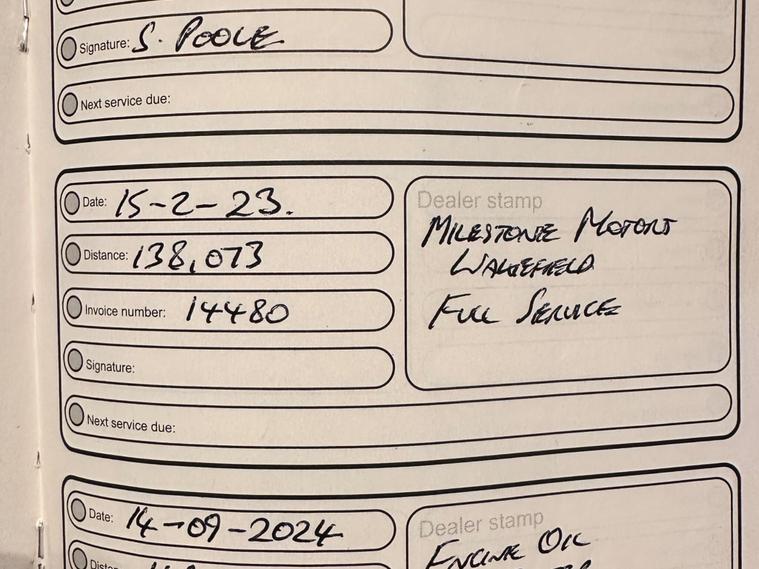 Signature: S. POOLE
Next service due:
Date: 15-2-23.
Distance: 138,073
Invoice number: 14480
Signature:
Next service due:
Dealer stamp
MILESTONE MOTORS
WAKEFIELD
FULL SERVICE
Date: 14-09-2024
Dealer stamp
ENGINE OIL